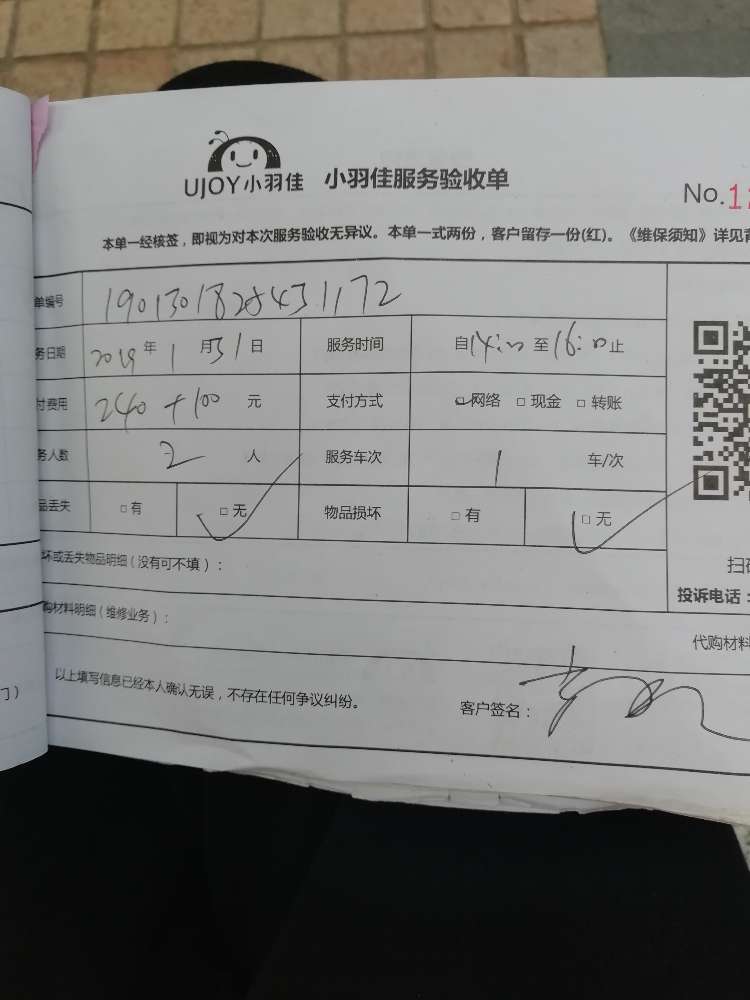 UJOY小羽佳 小羽佳服务验收单
No.1
本单一经核签，即视为对本次服务验收无异议。本单一式两份，客户留存一份(红)。《维保须知》详见背
单编号 1901301828431172
务日期 2019年1月31日 服务时间 自14:00至16:00止
付费用 240+100元 支付方式 □网络 □现金 □转账
务人数 2人 服务车次 1 车/次
品丢失 □有 □无 物品损坏 □有 □无
坏或丢失物品明细（没有可不填）：
扫码
投诉电话：
购材料明细（维修业务）：
代购材料
以上填写信息已经本人确认无误，不存在任何争议纠纷。
客户签名：
门）